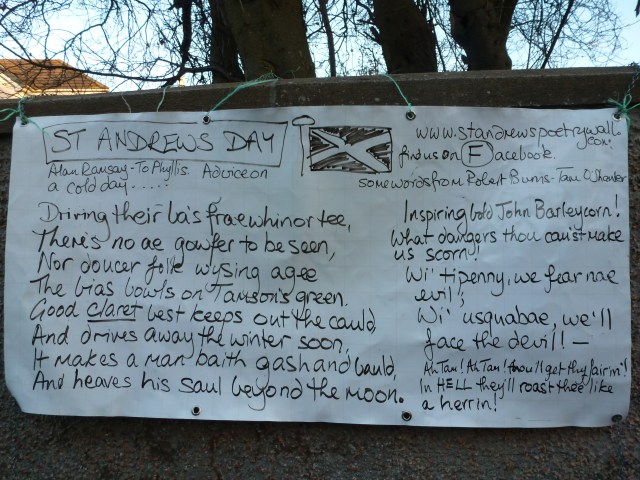 ST ANDREWS DAY
Alan Ramsay - To Phyllis. Advice on
a cold day.....
Driving their ba's frae whin or tee,
There's no ae gowfer to be seen,
Nor doucer folk wysing agee
The bias bowls on Tamson's green.
Good claret best keeps out the cauld,
And drives away the winter soon,
It makes a man baith gash and bauld,
And heaves his saul beyond the moon.
www.standrewspoetrywall.
com.
find us on Facebook.
some words from Robert Burns - Tam O'Shanter
Inspiring bold John Barleycorn!
What dangers thou canst make
us scorn!
Wi' tipenny, we fear nae
evil;
Wi' usquabae, we'll
face the devil! —
Ah Tam! Ah Tam! thou'll get thy fairin'!
In HELL they'll roast thee like
a herrin!